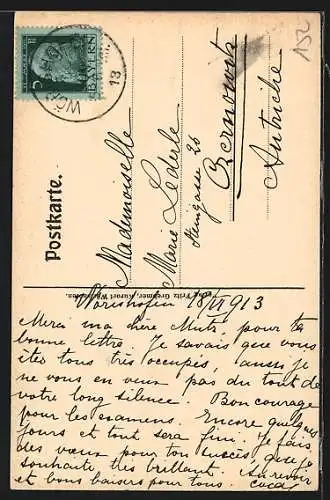 152
BAYERN
WÖRISHOFEN
13
Postkarte.
Mademoiselle
Marie Lederle
Steingasse 26
Czernowitz
Autriche
Fritz Kurort
Wörishofen 18/VI 913
Merci ma chère Mutz, pour ta
bonne lettre. Je savais que vous
étes tous très occupés, aussi je
ne vous en veux pas du tout de
votre long silence. Bon courage
pour les examens. Encore quelques
jours et tout sera fini. Je fais
des vœux pour ton succès que je
souhaite très brillant. Au revoir
et bons baisers pour tous.